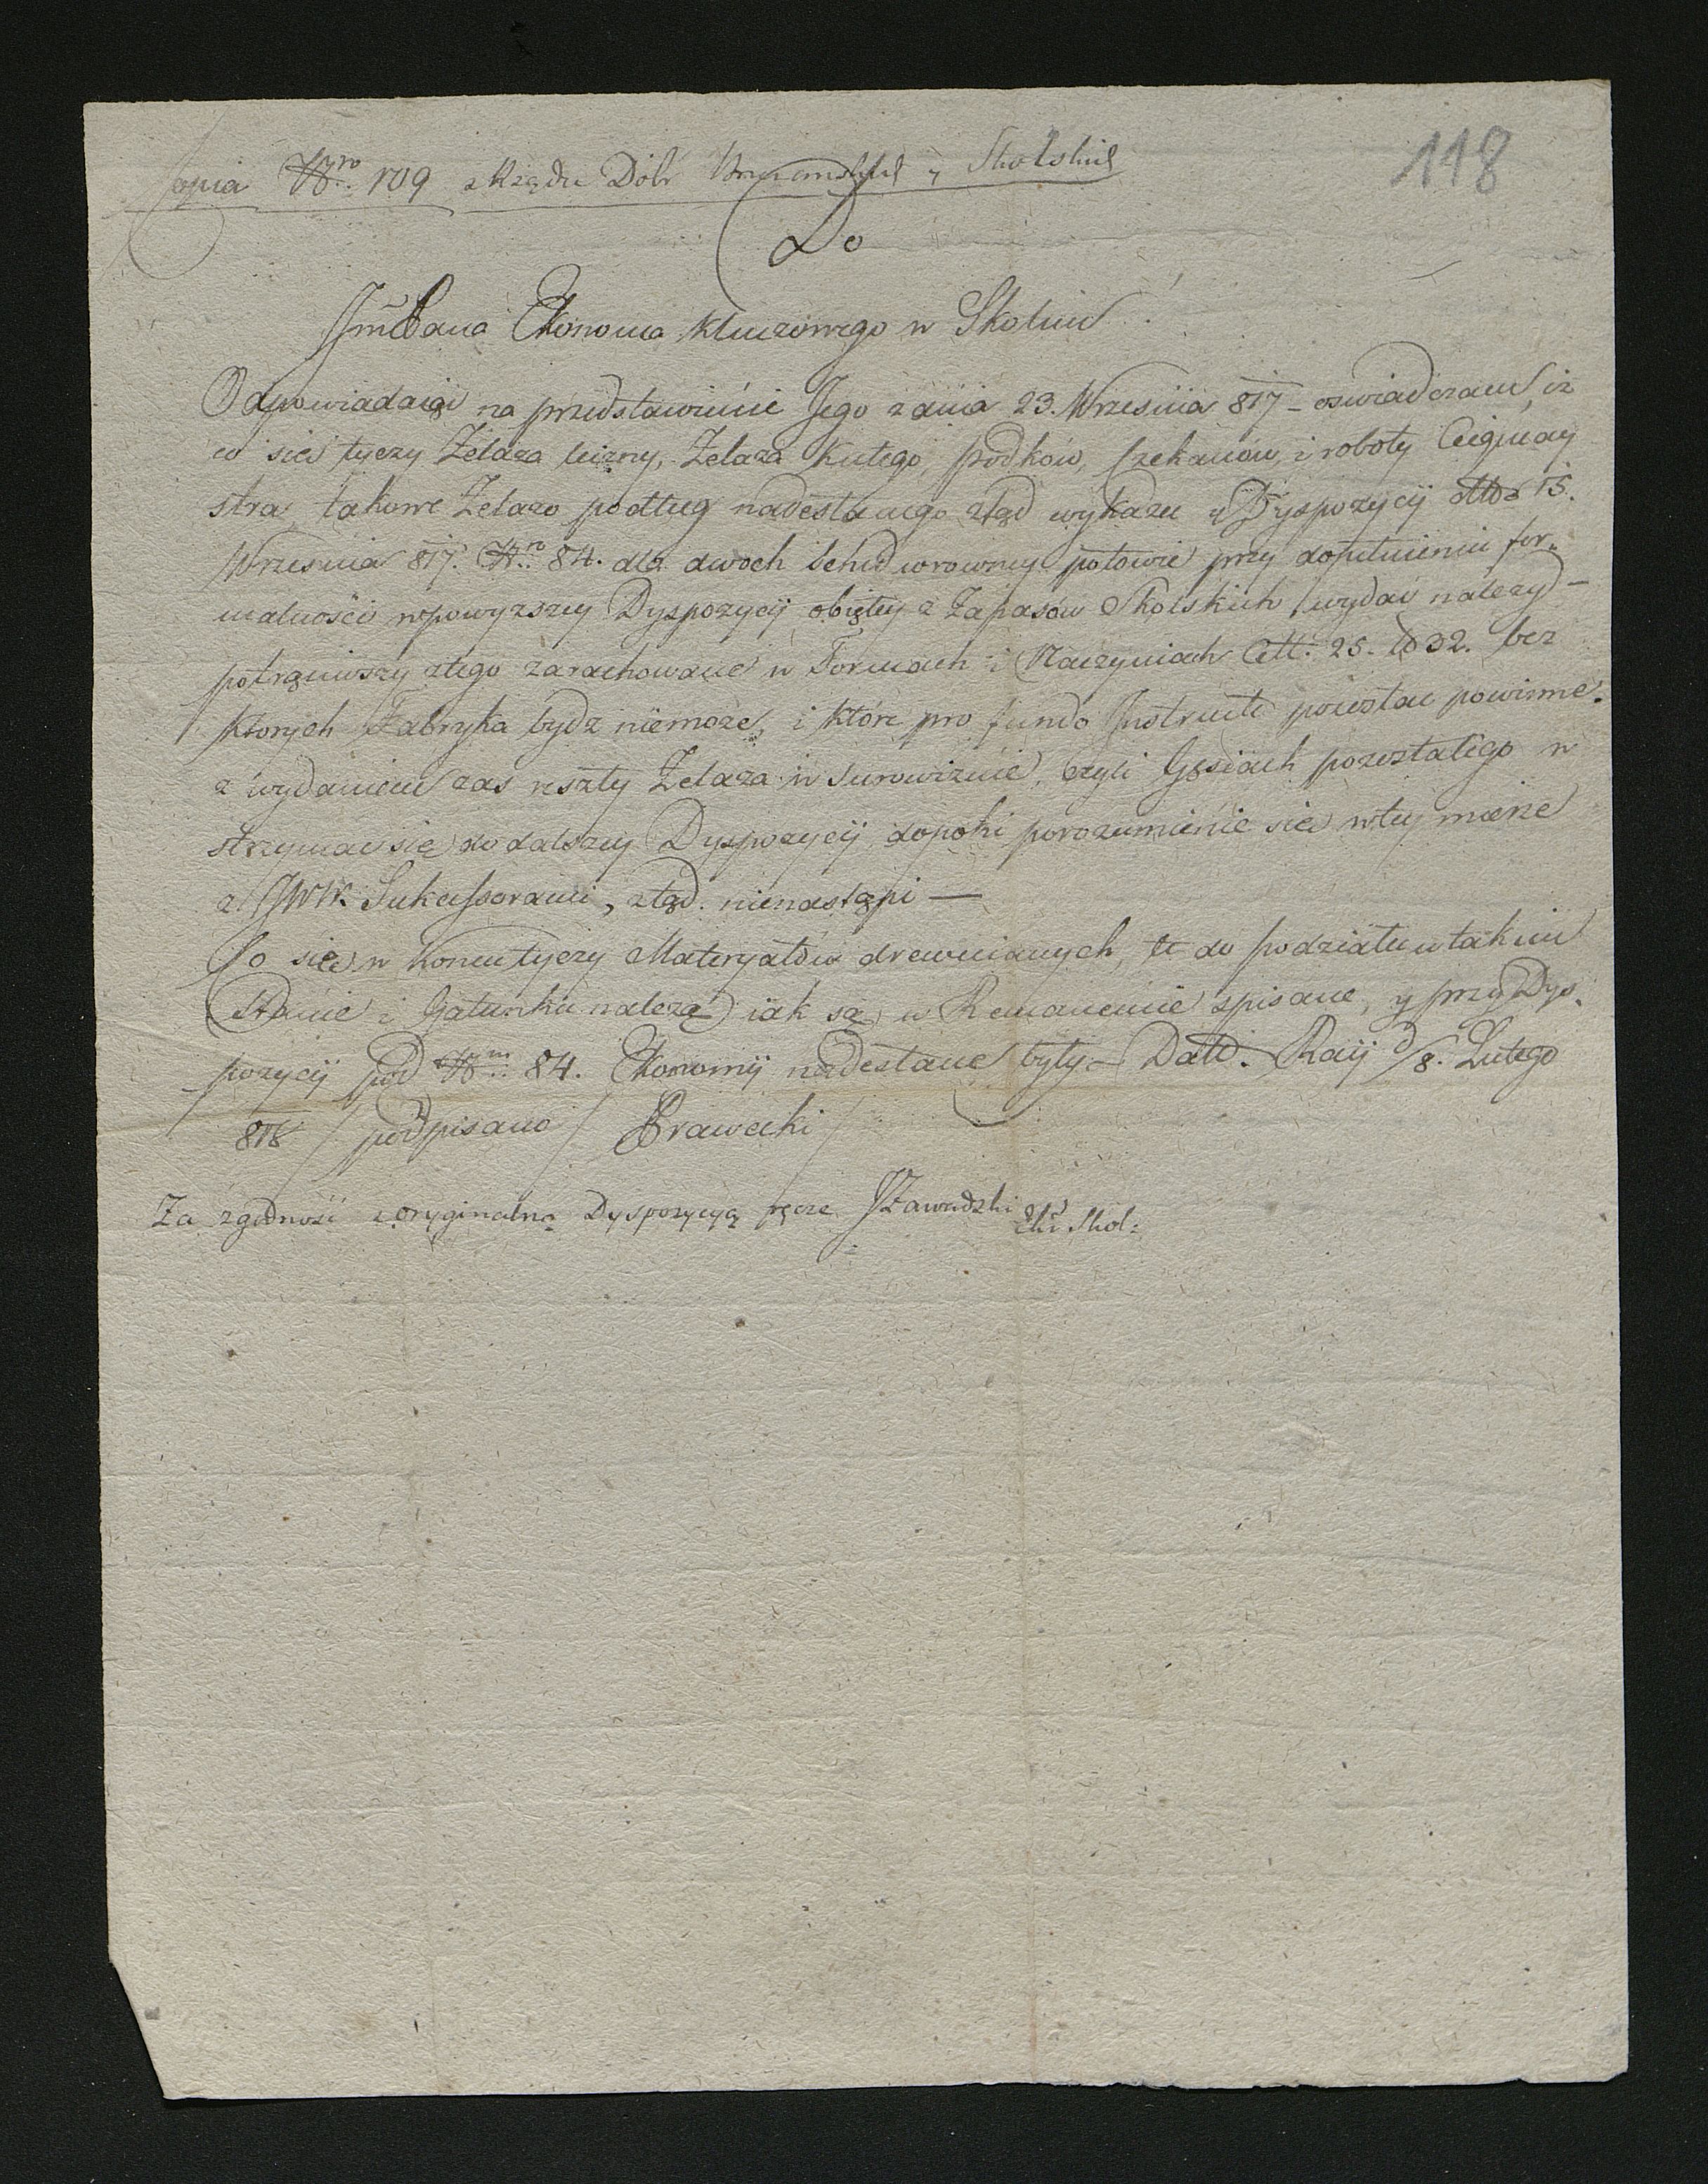 118
Copia Nro 109 z Rządu Dóbr Brzezanskich y Skolskich
Do
JmPana Ekonoma kluczowego w Skolim
Odpowiadaiąc na przedstawienie Jego z dnia 23. Wrzesnia 817 – oswiadczam, iz
co się tyczy Zelaza leizny, Zelaza kutego, podków, Czekanów, i roboty Ceigmay
stra, takowe Zelazo podług nadesłanego ztąd wykazu y Dyspozycij dtto 15.
Wrzesnia 817. Nro 84. dla dwoch Sched wrowney połowie przy dopełnieniu for-
malności wpowyzszey Dyspozycij obiętey z Zapasów Skolskich wydać nalezy –
potrąciwszy ztego zarachowane w Formach i Naczyniach Att: 25. to 32. bez
ktorych Fabryka bydz niemoze, i które pro fundo Instructo pozostac powinne.
z wydaniem zas reszty Zelaza w Surowiznie, czyli Gęsiach pozostałego w
strzymac się do dalszey Dyspozycij dopoki porozumienie się wtey mierze
z JWW. Sukcessorami, ztąd. nienastąpi —
Co się w koncu tyczy Materyałów drewnianych, te do podziału w takim
Stanie i Gatunku nalezą iak są w Remanencie spisane, y przy Dys-
pozycij pod Nro 84. Ekonomij nadesłane były – Datto. Raij d 8. Lutego
818 / podpisano / Prawecki /
Za zgodność z oryginalną Dyspozycyą ręczę JZawadzki Ek: Skol: